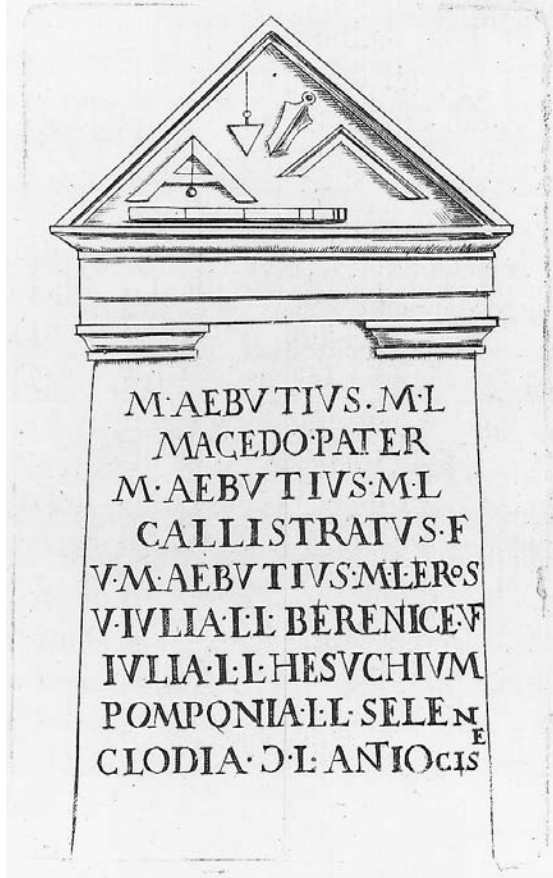 M·AEBVTIVS·M·L
MACEDO·PATER
M·AEBVTIVS·M·L
CALLISTRATVS·F
V·M·AEBVTIVS·M·L·EROS
V·IVLIA·L·L·BERENICE·VF
IVLIA·L·L·HESVCHIVM
POMPONIA·L·L·SELENE
CLODIA·Ɔ·L·ANTIOCIS